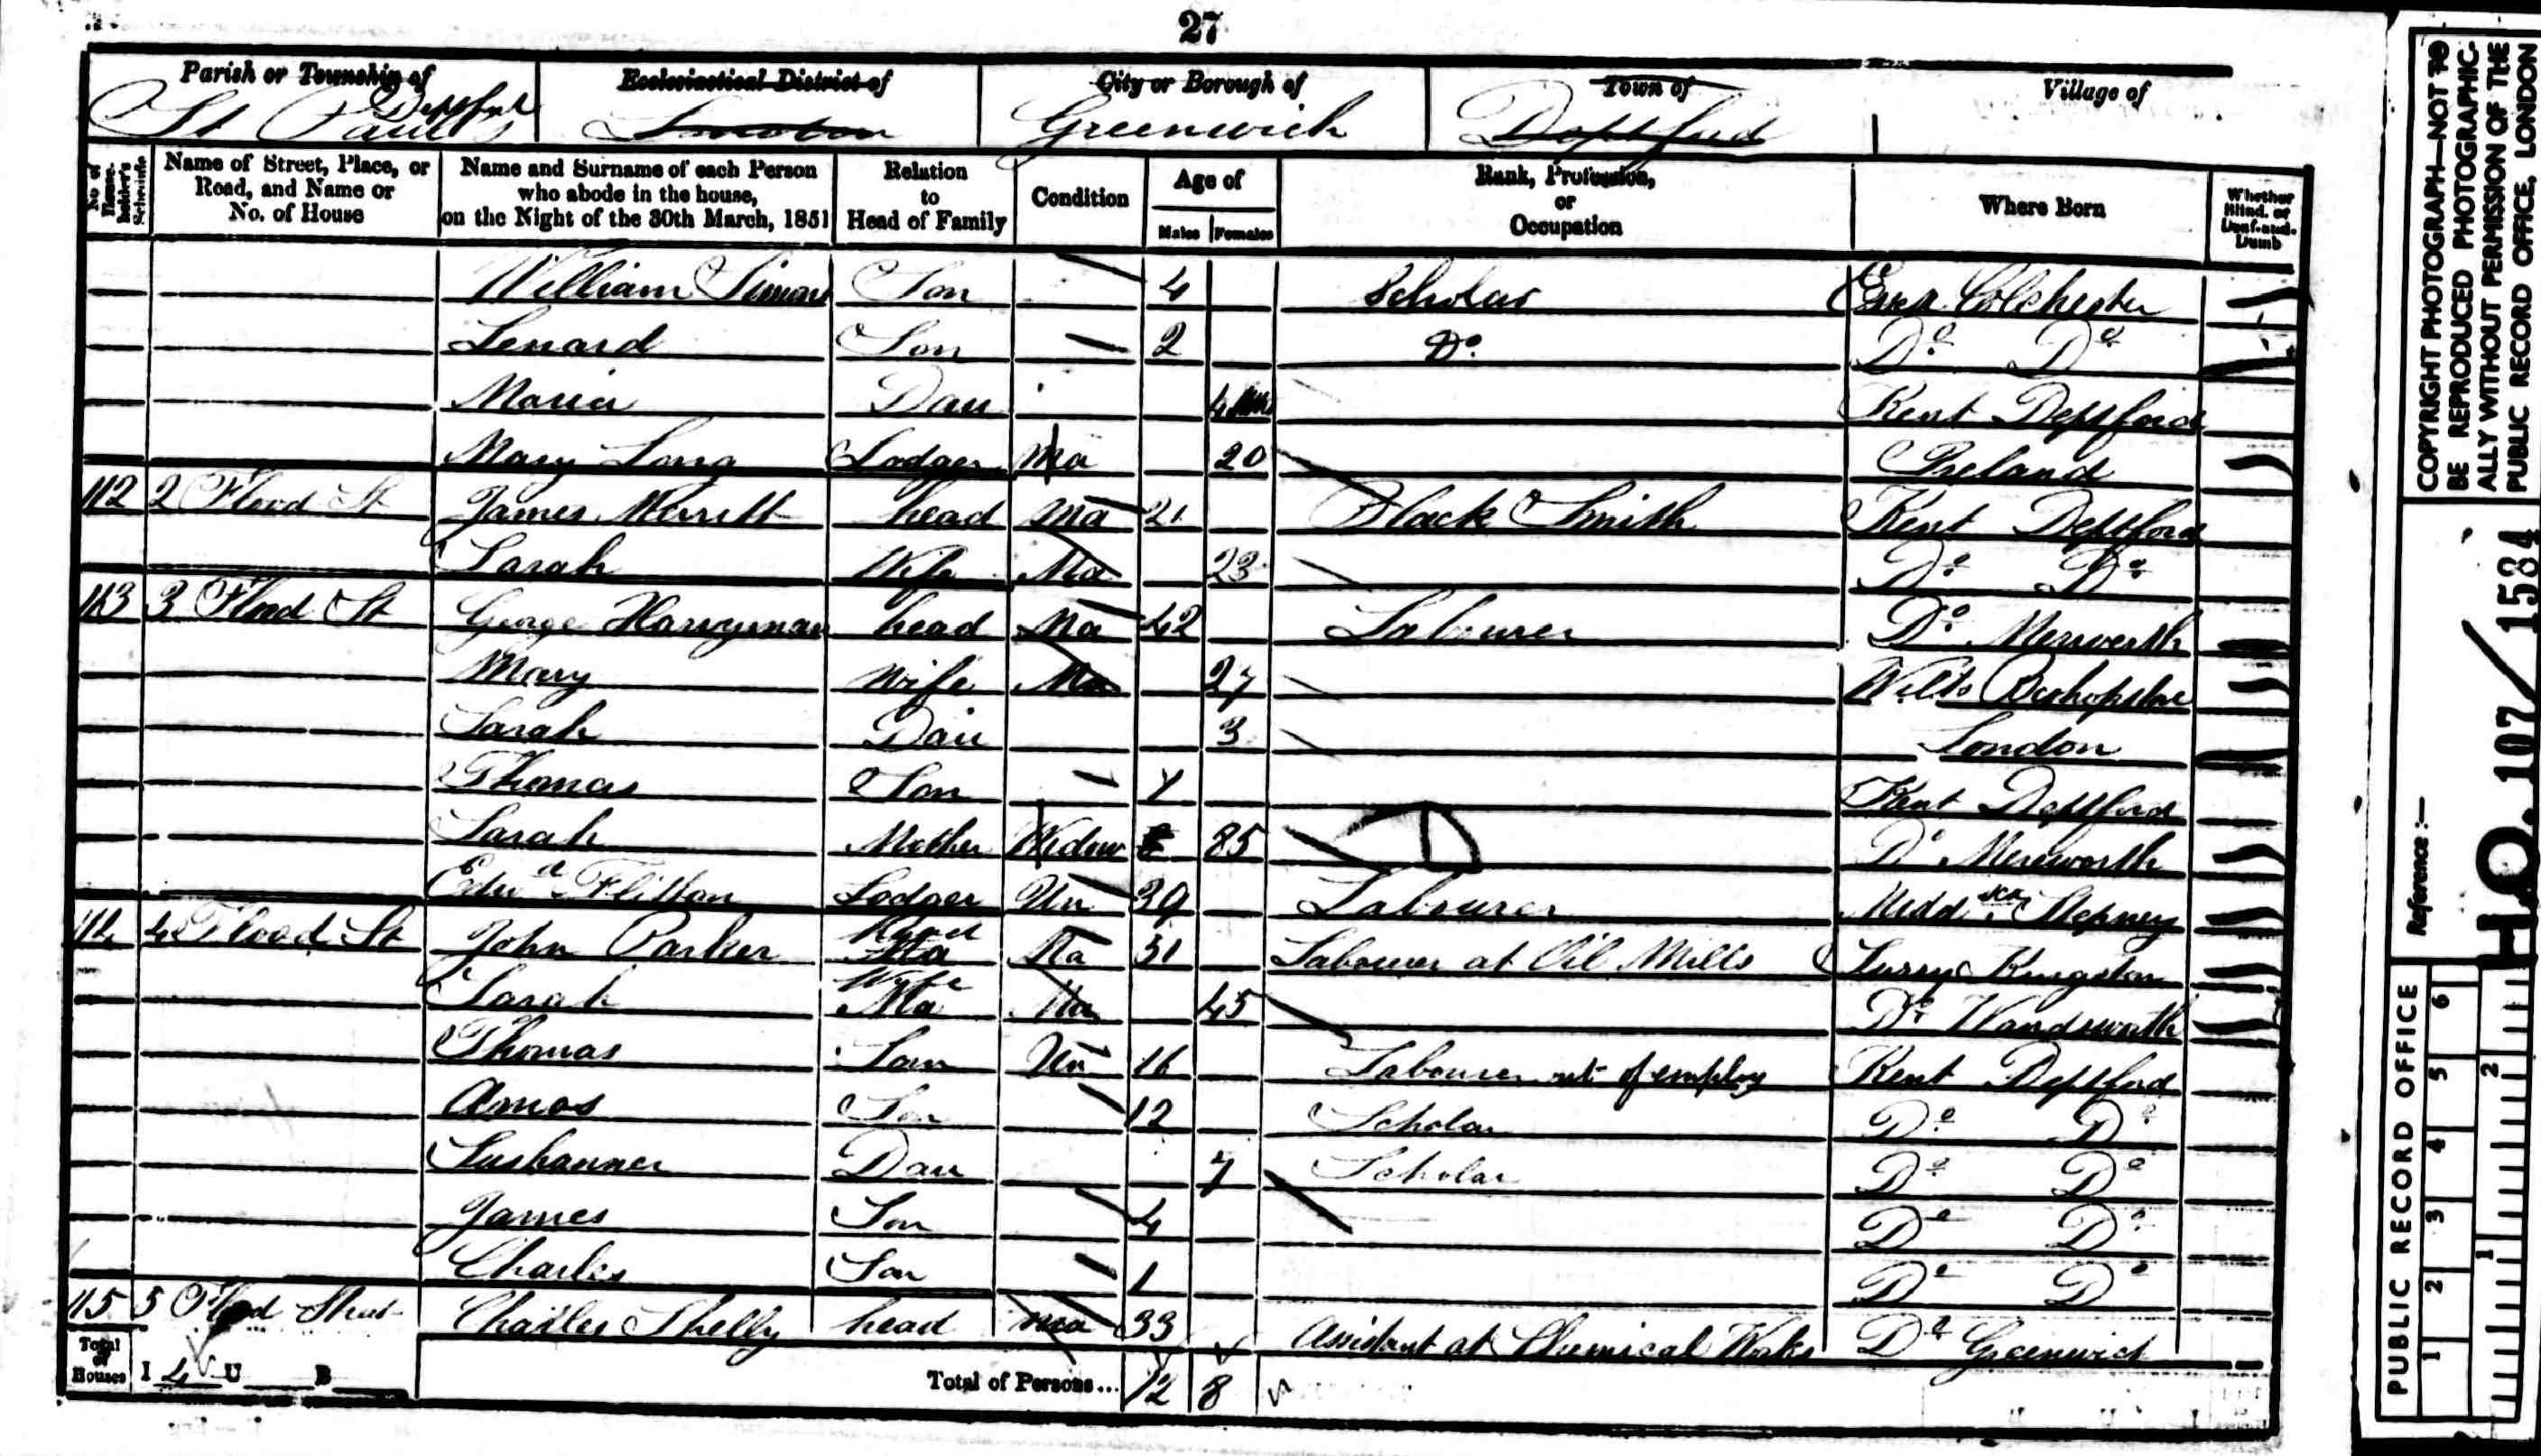 27
Parish or Township of
St Paul's Deptford
Ecclesiastical District of
City or Borough of
Greenwich
Town of
Deptford
Village of
No. of House-holder's Schedule
Name of Street, Place, or Road, and Name or No. of House
Name and Surname of each Person who abode in the house, on the Night of the 30th March, 1851
Relation to Head of Family
Condition
Age of
Males Females
Rank, Profession, or Occupation
Where Born
Whether Blind, or Deaf-and-Dumb
William Simons Son 4 Scholar Essex Colchester
Lenard Son 2 Do. Do Do
Maria Dau 4 Kent Deptford
Mary Long Lodger Ma 20 Ireland
112 2 Flood St James Merritt head Ma 21 Black Smith Kent Deptford
Sarah Wife Ma 23 Do Do
113 3 Flood St George head Ma 42 Labourer Do Mereworth
Mary Wife Ma 27 Wilts
Sarah Dau 3 London
Thomas Son Kent Deptford
Sarah Mother Widow 85 Do Mereworth
Edwd Flitton Lodger Un 39 Labourer Middsex Stepney
114 4 Flood St John Parker Head Ma Ma 51 Labourer at Oil Mills Surry Kingston
Sarah Wife Ma Ma 45 Do Wandsworth
Thomas Son Un 16 Labourer out of employ Kent Deptford
Amos Son 12 Scholar Do Do
Sushanner Dau 7 Scholar Do Do
James Son 4 Do Do
Charles Son 1 Do Do
115 5 Flood Street Charles Shelly head Ma 33 Assistant at Chemical Works Do Greenwich
Total of Houses I 4 U B
Total of Persons... 12 8
COPYRIGHT PHOTOGRAPH—NOT TO
BE REPRODUCED PHOTOGRAPHIC-
ALLY WITHOUT PERMISSION OF THE
PUBLIC RECORD OFFICE, LONDON
Reference:—
H.O. 107/1584
PUBLIC RECORD OFFICE
1 2 3 4 5 6
1 2